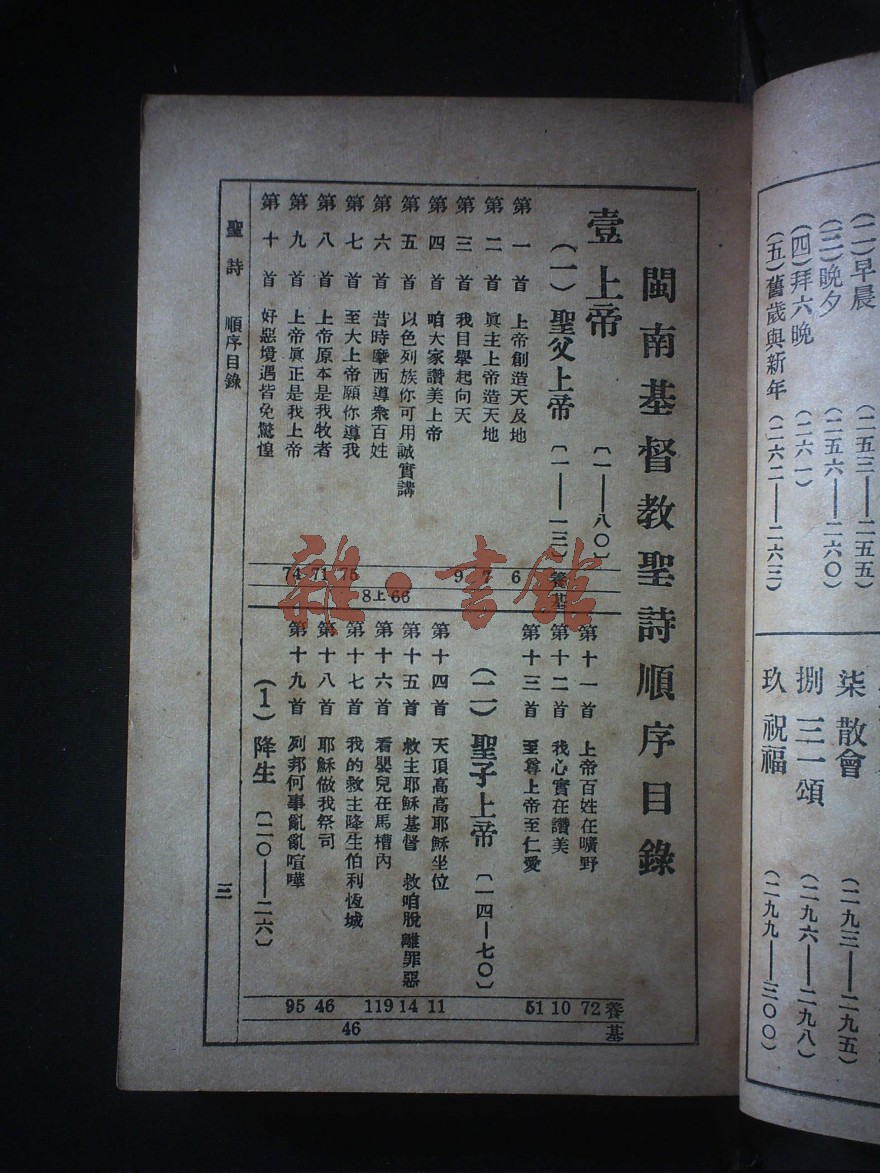 閩南基督教聖詩順序目錄
壹 上帝 〔一——八〇〕
(一) 聖父上帝 〔一——一三〕
第一首 上帝創造天及地
第二首 眞主上帝造天地
第三首 我目舉起向天
第四首 咱大家讚美上帝
第五首 以色列族你可用誠實講
第六首 昔時摩西導衆百姓
第七首 至大上帝願你導我
第八首 上帝原本是我牧者
第九首 上帝眞正是我上帝
第十首 好惡境遇皆免驚惶
養 6 7 9 75 71 74
基 66 上8
第十一首 上帝百姓在曠野
第十二首 我心實在讚美
第十三首 至尊上帝至仁愛
(二) 聖子上帝 〔一四—七〇〕
第十四首 天頂高高耶穌坐位
第十五首 救主耶穌基督 救咱脫離罪惡
第十六首 看嬰兒在馬槽內
第十七首 我的救主降生伯利恆城
第十八首 耶穌做我祭司
第十九首 列邦何事亂亂喧嘩
(1) 降生 〔二〇——二六〕
養 72 10 51 11 14 119 46 95
基 46
聖詩 順序目錄
三
雜·書館
(二)早晨 (二五三——二五五)
(三)晚夕 (二五六——二六〇)
(四)拜六晚 (二六一)
(五)舊歲與新年 (二六二——二六三)
柒 散會 (二九三——二九五)
捌 三一頌 (二九六——二九八)
玖 祝福 (二九九——三〇〇)